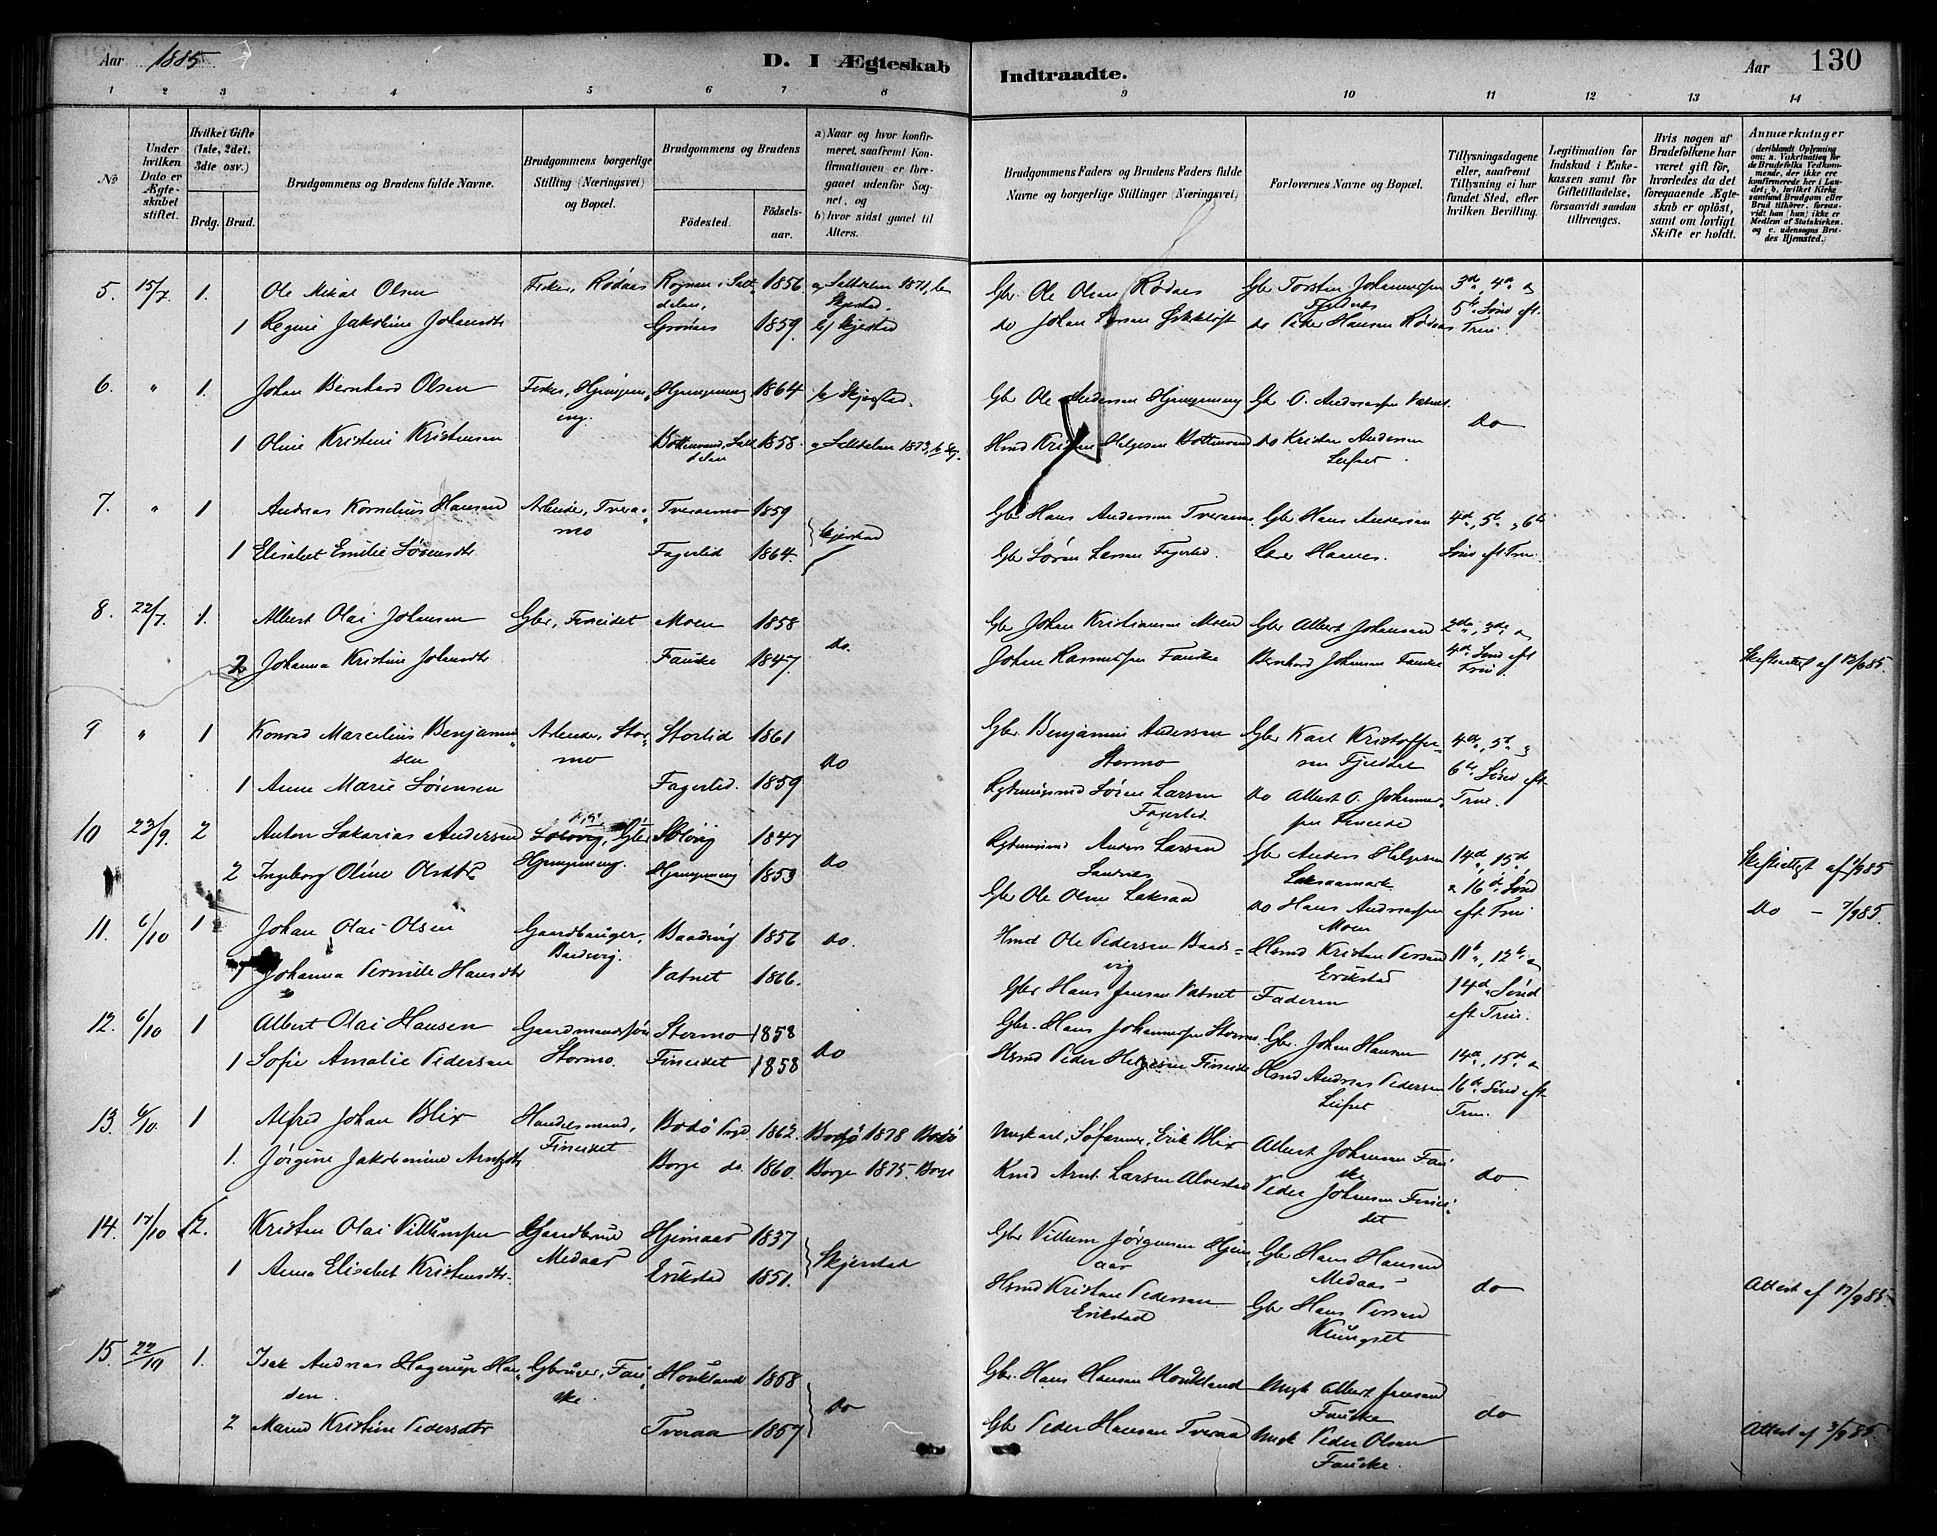 Aar 1885 D. I Ægteskab
Indtraadte. Aar 130
1 2 3 4 5 6 7 8 9 10 11 12 13 14
No
Under hvilken Dato er Ægteskabet stiftet.
Hvilket Gifte (1ste, 2det, 3die osv.)
Brdg. Brud.
Brudgommens og Brudens fulde Navne.
Brudgommens borgerlige Stilling (Næringsvei) og Bopæl.
Brudgommens og Brudens
Fødested.
Fødselsaar.
a) Naar og hvor konfirmeret, saafremt Konfirmationen er foregaaet udenfor Sognet, og
b) hvor sidst gaaet til Alters.
Brudgommens Faders og Brudens Faders fulde Navne og borgerlige Stillinger (Næringsvei)
Forlovernes Navne og Bopæl.
Tillysningsdagene eller, saafremt Tillysning ei har fundet Sted, efter hvilken Bevilling.
Legitimation for Indskud i Enkekassen samt for Giftetilladelse, forsaavidt saadan tiltrænges.
Hvis nogen af Brudefolkene har været gift før, hvorledes da det foregaaende Ægteskab er opløst, samt om lovligt Skifte er holdt.
Anmærkninger (deriblandt Oplysning om: a. Vakcination for de Brudefolks Vedkommende, der ikke ere konfirmerede her i Landet; b. hvilket Kirkesamfund Brudgom eller Brud tilhører, forsaavidt han (hun) ikke er Medlem af Statskirken. og c. udensogns Brudes Hjemsted.)
5. 15/7 1. Ole Mikal Olsen Fisker, Rødaas Rognan i Saltdalen, 1856 a/ Saltdalen 1871, b/ Skjerstad. Gbr. Ole Olsen Rødaas Gbr Torsten Johannessen 3die, 4de &
1 Regine Jakobine Johansdtr Grønnes 1859. b/ Skjerstad do Johan Larsen do Peder Hansen Rødaas 5te Sønd eft. Trin.
6. " 1. Johan Bernhard Olsen Fisker, Hjemgameng. Hjemgameng 1864 b/ Skjerstad. Gbr Ole Andersen Hjemgameng Gbr O. Andreassen Vatnet do
1 Oline Kristine Kristensen Bottenvand, Saltdalen 1858. a/ Saltdalen 1873, b/ Skj. Hmd Kristen Helgesen Bottenvand do Kristen Andersen Leifset
7. " 1 Andreas Kornelius Hansen Arbeider, Tveraamo Tveraamo 1859 Skjerstad Gbr Hans Andersen Tveraamo Gbr Hans Andersen 4de, 5te & 6te
1 Elisabet Emilie Sørensdtr. Fagerlid 1864. Gbr Søren Larsen Fagerlid. Sønd eft Trin.
8. 22/7. 1. Albert Olai Johansen Gbr, Fineidet Moen 1858 do. Gbr Johan Kristiansen Moen Gbr Albert Johansen 2den, 3die &
2 Johanna Kristine Johansdtr Fauske 1847. Johan Rasmussen Fauske Bernhard Johansen Fauske 4de Sønd eft Trin. Skifteattest af 12/6 85.
9 " 1 Konrad Marcelius Benjaminsen Arbeider, Stormo Storlid 1861 do Gbr Benjamin Andersen Stormo Gbr Karl Kristoffersen Fjeldet 4de, 5te &
1 Anne Marie Sørensen Fagerlid. 1859 Søren Larsen Fagerlid do Albert O. Johannessen Fineide 6te Sønd eft Trin.
10 23/9. 2 Anton Sakarias Andersen Solovig, Gbr Hjemgameng. Solovig 1847 do Anders Larsen Sandnes Gbr Anders Helgesen Laksaamark 14de, 15de Skifteattest af 7/9 85
2 Ingeborg Oline Olsdtr. Hjemgameng 1853 Gbr Ole Olsen Laksaa do Hans Andreassen Moen & 16de Sønd eft. Trin. Do — 7/9 85.
11. 6/10 1 Johan Olai Olsen Gaardbruger, Baadsvig. Baadsvig 1856 do. Hmd Ole Pedersen Baadsvig Hsmd Kristen Persen Erikstad 11te, 12te &
1 Johanna Pernille Hansdtr Vatnet 1866. Gbr Hans Jensen Vatnet Faderen 14de Sønd eft Trin.
12. 6/10 1 Albert Olai Hansen Gaardmandssøn Stormo. Stormo 1858 do Gbr. Hans Johannessen Stormo Gbr. Johan Hansen 14de, 15de &
1 Sofie Amalie Pedersen Fineidet 1858 Hsmd Peder Helgesen Fineide Hsmd Andreas Pedersen Leifset 16de Sønd eft Trin.
13. 6/10. 1 Alfred Johan Blix Handelsmand, Fineidet Bodø Prgd. 1862. Bodø 1878 Bodø Ungkarl, Søfarende, Erik Blix Albert Johansen Fauske do
1. Jørgine Jakobmine Arntsdtr Borge do. 1860. Borge 1875. Borge Arnt Larsen Alvestad Peder Johansen Fineidet
14. 17/10 2. Kristen Olai Villumsen Gaardbruger Medaas Hjemaas 1837 Skjerstad Gbr Villum Jørgensen Hjemaas Gbr Hans Hansen Medaas do
1 Anna Elisabet Kristensdtr. Erikstad 1851. Hsmd Kristen Pedersen Erikstad Gbr Hans Persen Klungset Attest af 17/9 85.
15 22/10 1. Isak Andreas Hagerup Hansen Gbruger, Fauske. Houkland 1858 do Gbr. Hans Hansen Houkland Ungk Albert Jensen Fauske do
2 Maren Kristine Pedersdtr Tveraa 1857 Gbr Peder Hansen Tveraa Ungk Peder Olsen Fauske. Attest af 3/9 85.